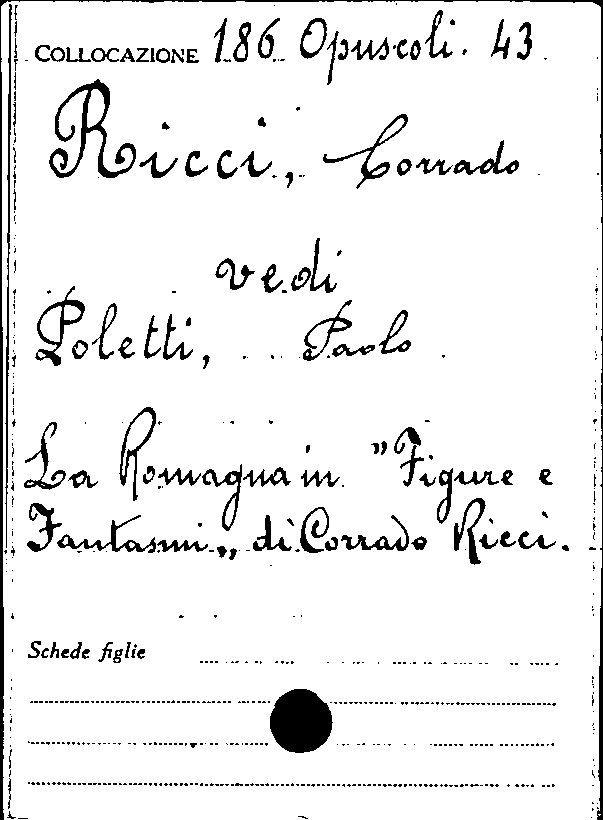 COLLOCAZIONE 186 Opuscoli. 43
Ricci, Corrado
vedi
Poletti, Paolo
La Romagna in "Figure e
Fantasmi„ di Corrado Ricci.
Schede figlie